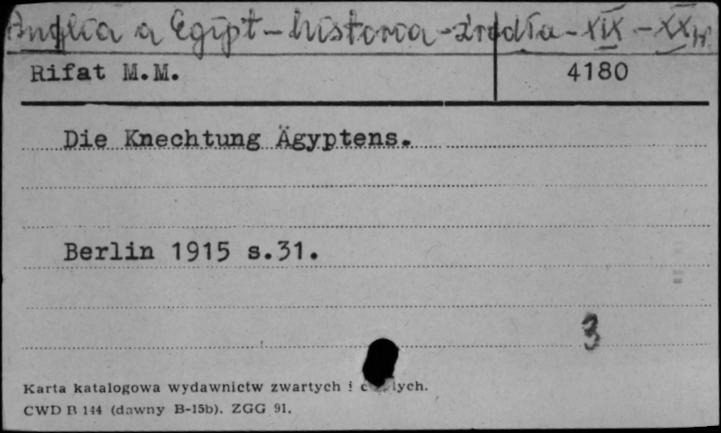 Anglia a Egipt - historia - źródła - XIX - XX w
Rifat M.M. 4180
Die Knechtung Ägyptens.
Berlin 1915 s.31.
3
Karta katalogowa wydawnictw zwartych i lych.
CWD B 144 (dawny B-15b). ZGG 91.